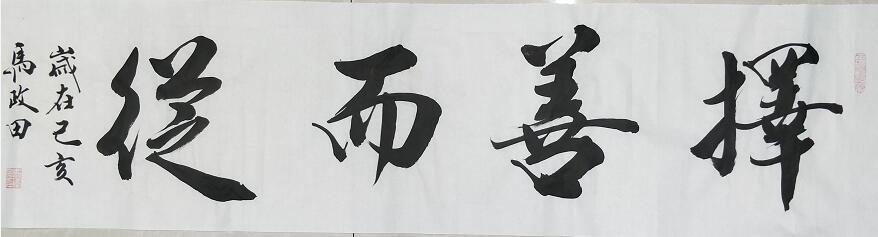 擇善而從
歲在己亥
馬政田